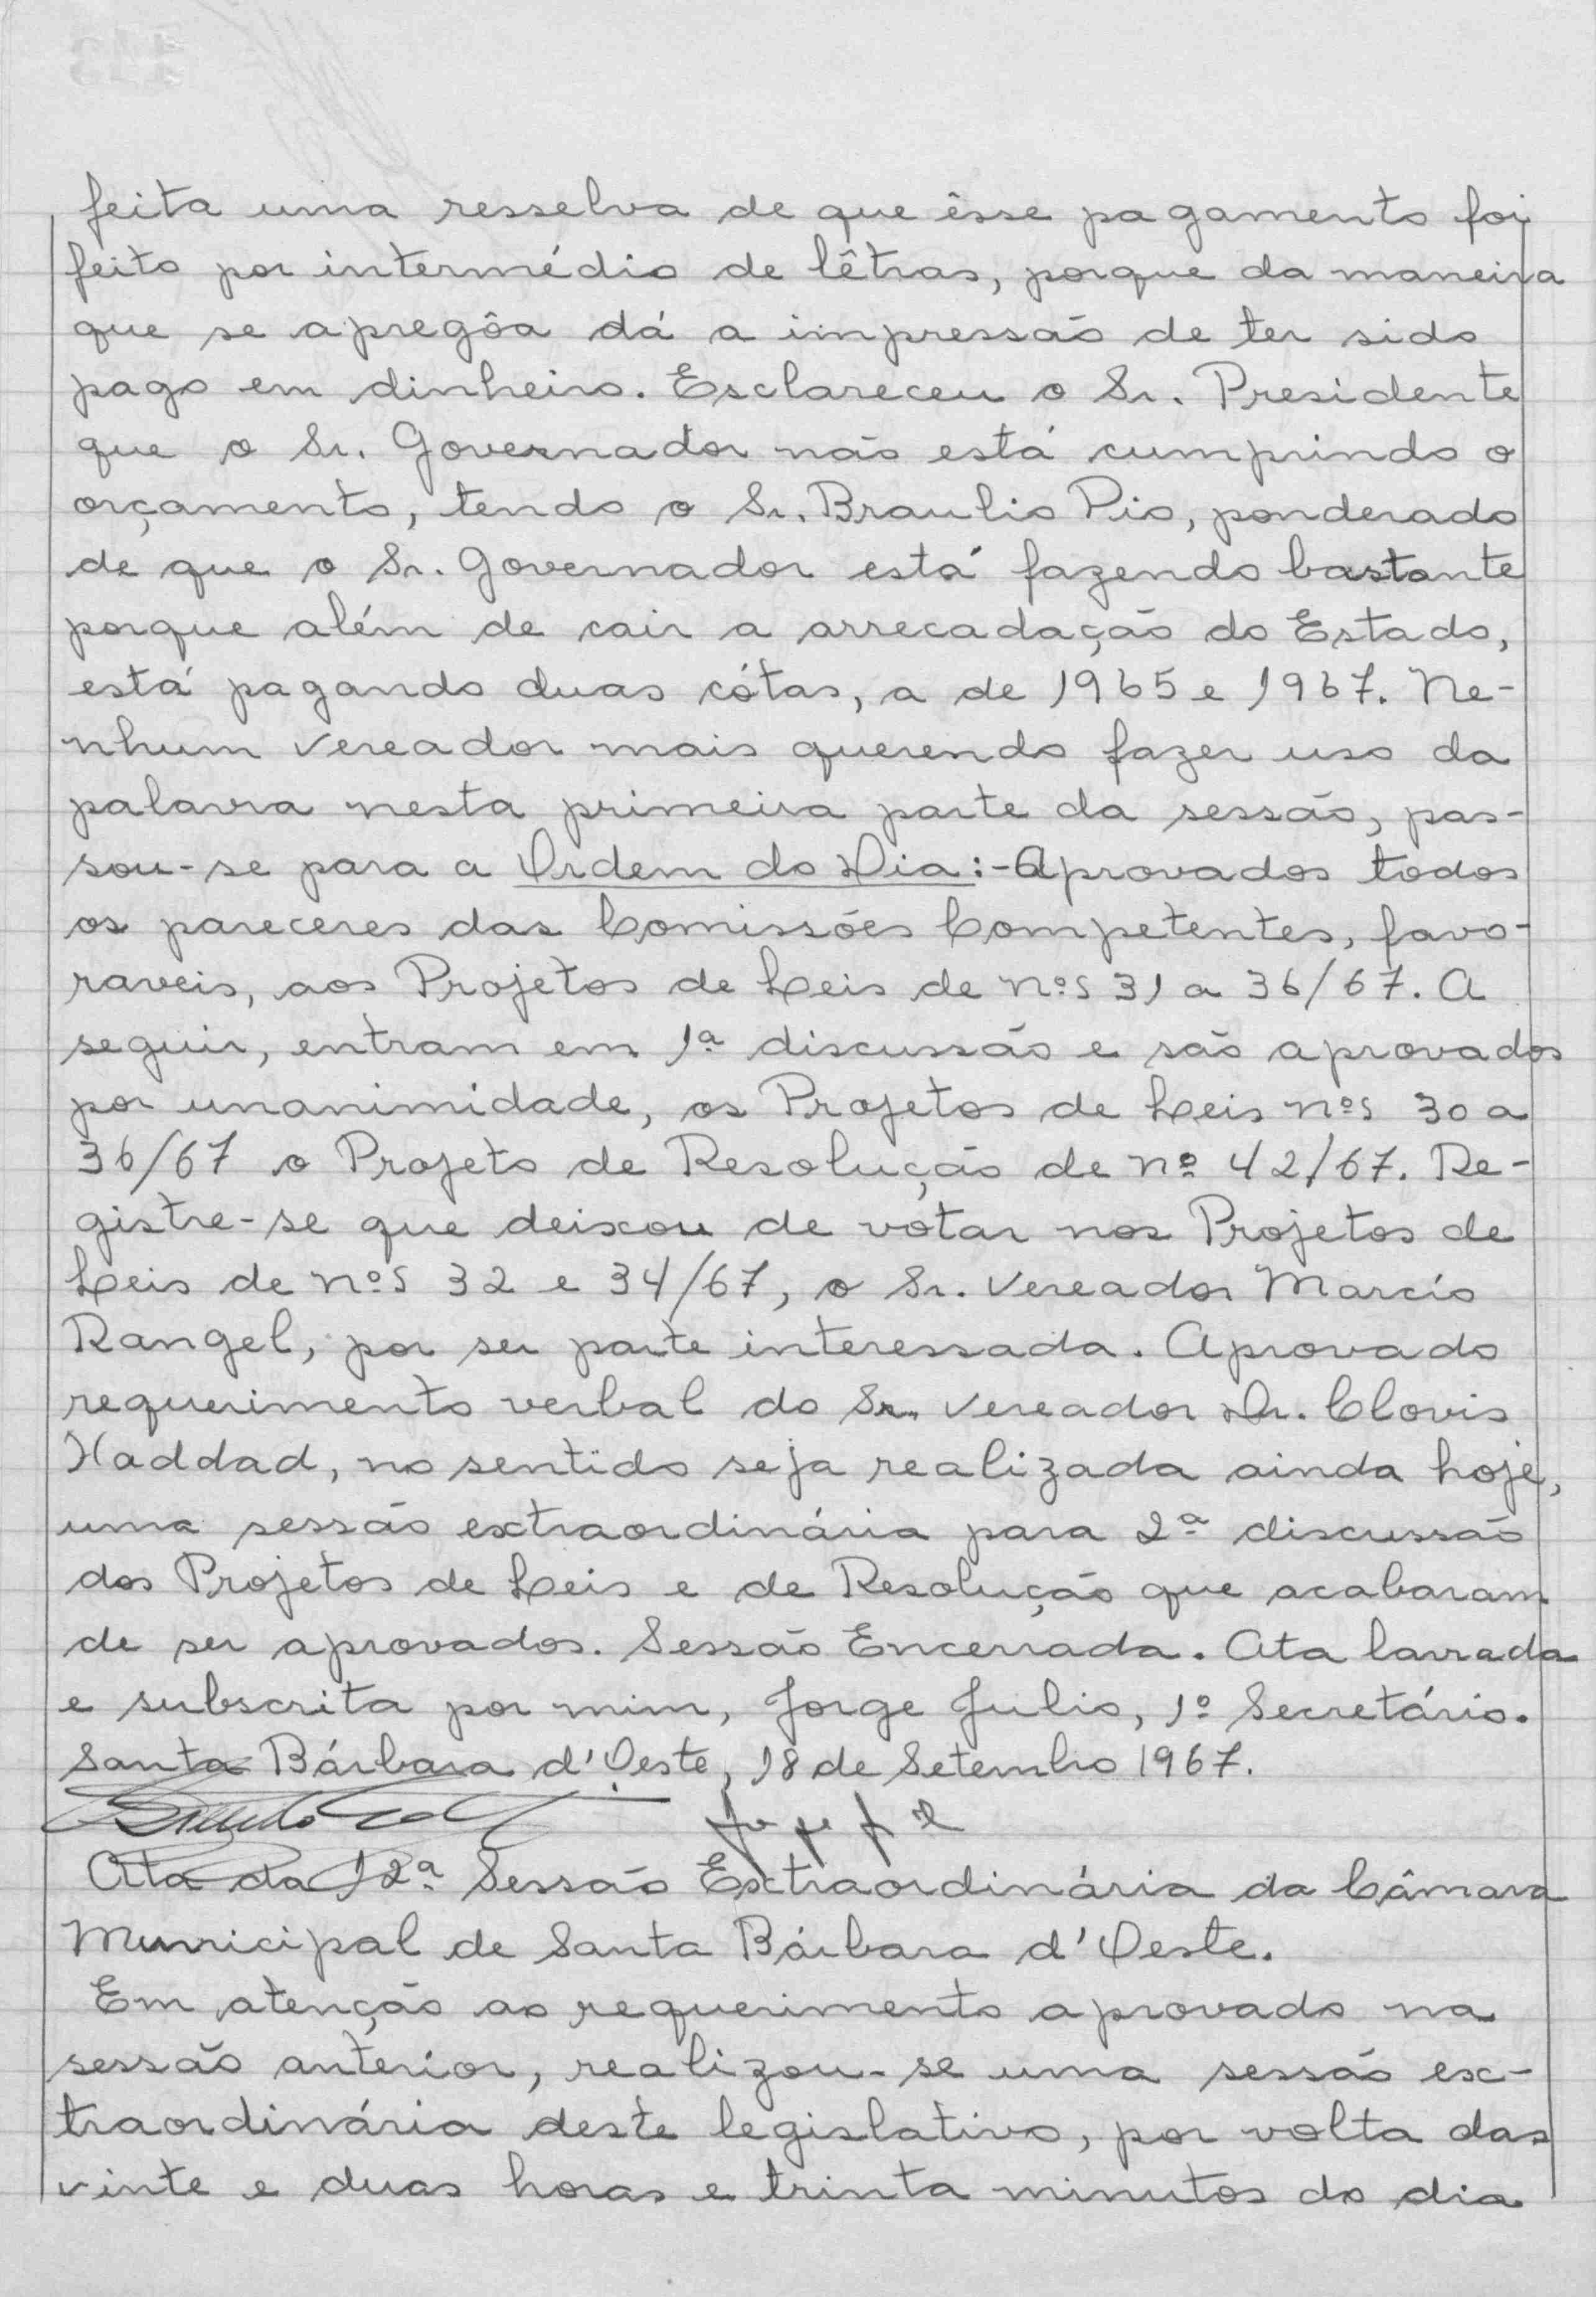 feita uma resselva de que êsse pagamento foi
feito por intermédio de lêtras, porque da maneira
que se apregôa dá a impressão de ter sido
pago em dinheiro. Esclareceu o Sr. Presidente
que o Sr. Governador não está cumprindo o
orçamento, tendo o Sr. Braulio Pio, ponderado
de que o Sr. Governador está fazendo bastante
porque além de cair a arrecadação do Estado,
está pagando duas cótas, a de 1965 e 1967. Ne-
nhum vereador mais querendo fazer uso da
palavra nesta primeira parte da sessão, pas-
sou-se para a Ordem do Dia:-Aprovados todos
os pareceres das Comissões Competentes, favo-
raveis, aos Projetos de Leis de nºs 31 a 36/67. A
seguir, entram em 1ª discussão e são aprovados
por unanimidade, os Projetos de Leis nºs 30 a
36/67 o Projeto de Resolução de nº 42/67. Re-
gistre-se que deixou de votar nos Projetos de
Leis de nºs 32 e 34/67, o Sr. Vereador Marcio
Rangel, por ser parte interessada. Aprovado
requerimento verbal do Sr. Vereador Dr. Clovis
Haddad, no sentido seja realizada ainda hoje,
uma sessão extraordinária para 2ª discussão
dos Projetos de Leis e de Resolução que acabaram
de ser aprovados. Sessão Encerrada. Ata lavrada
e subscrita por mim, Jorge Julio, 1º Secretário.
Santa Bárbara d'Oeste, 18 de Setembro 1967.
Ata da 12ª Sessão Extraordinária da Câmara
Municipal de Santa Bárbara d'Oeste.
Em atenção ao requerimento aprovado na
sessão anterior, realizou-se uma sessão ex-
traordinária deste legislativo, por volta das
vinte e duas horas e trinta minutos do dia